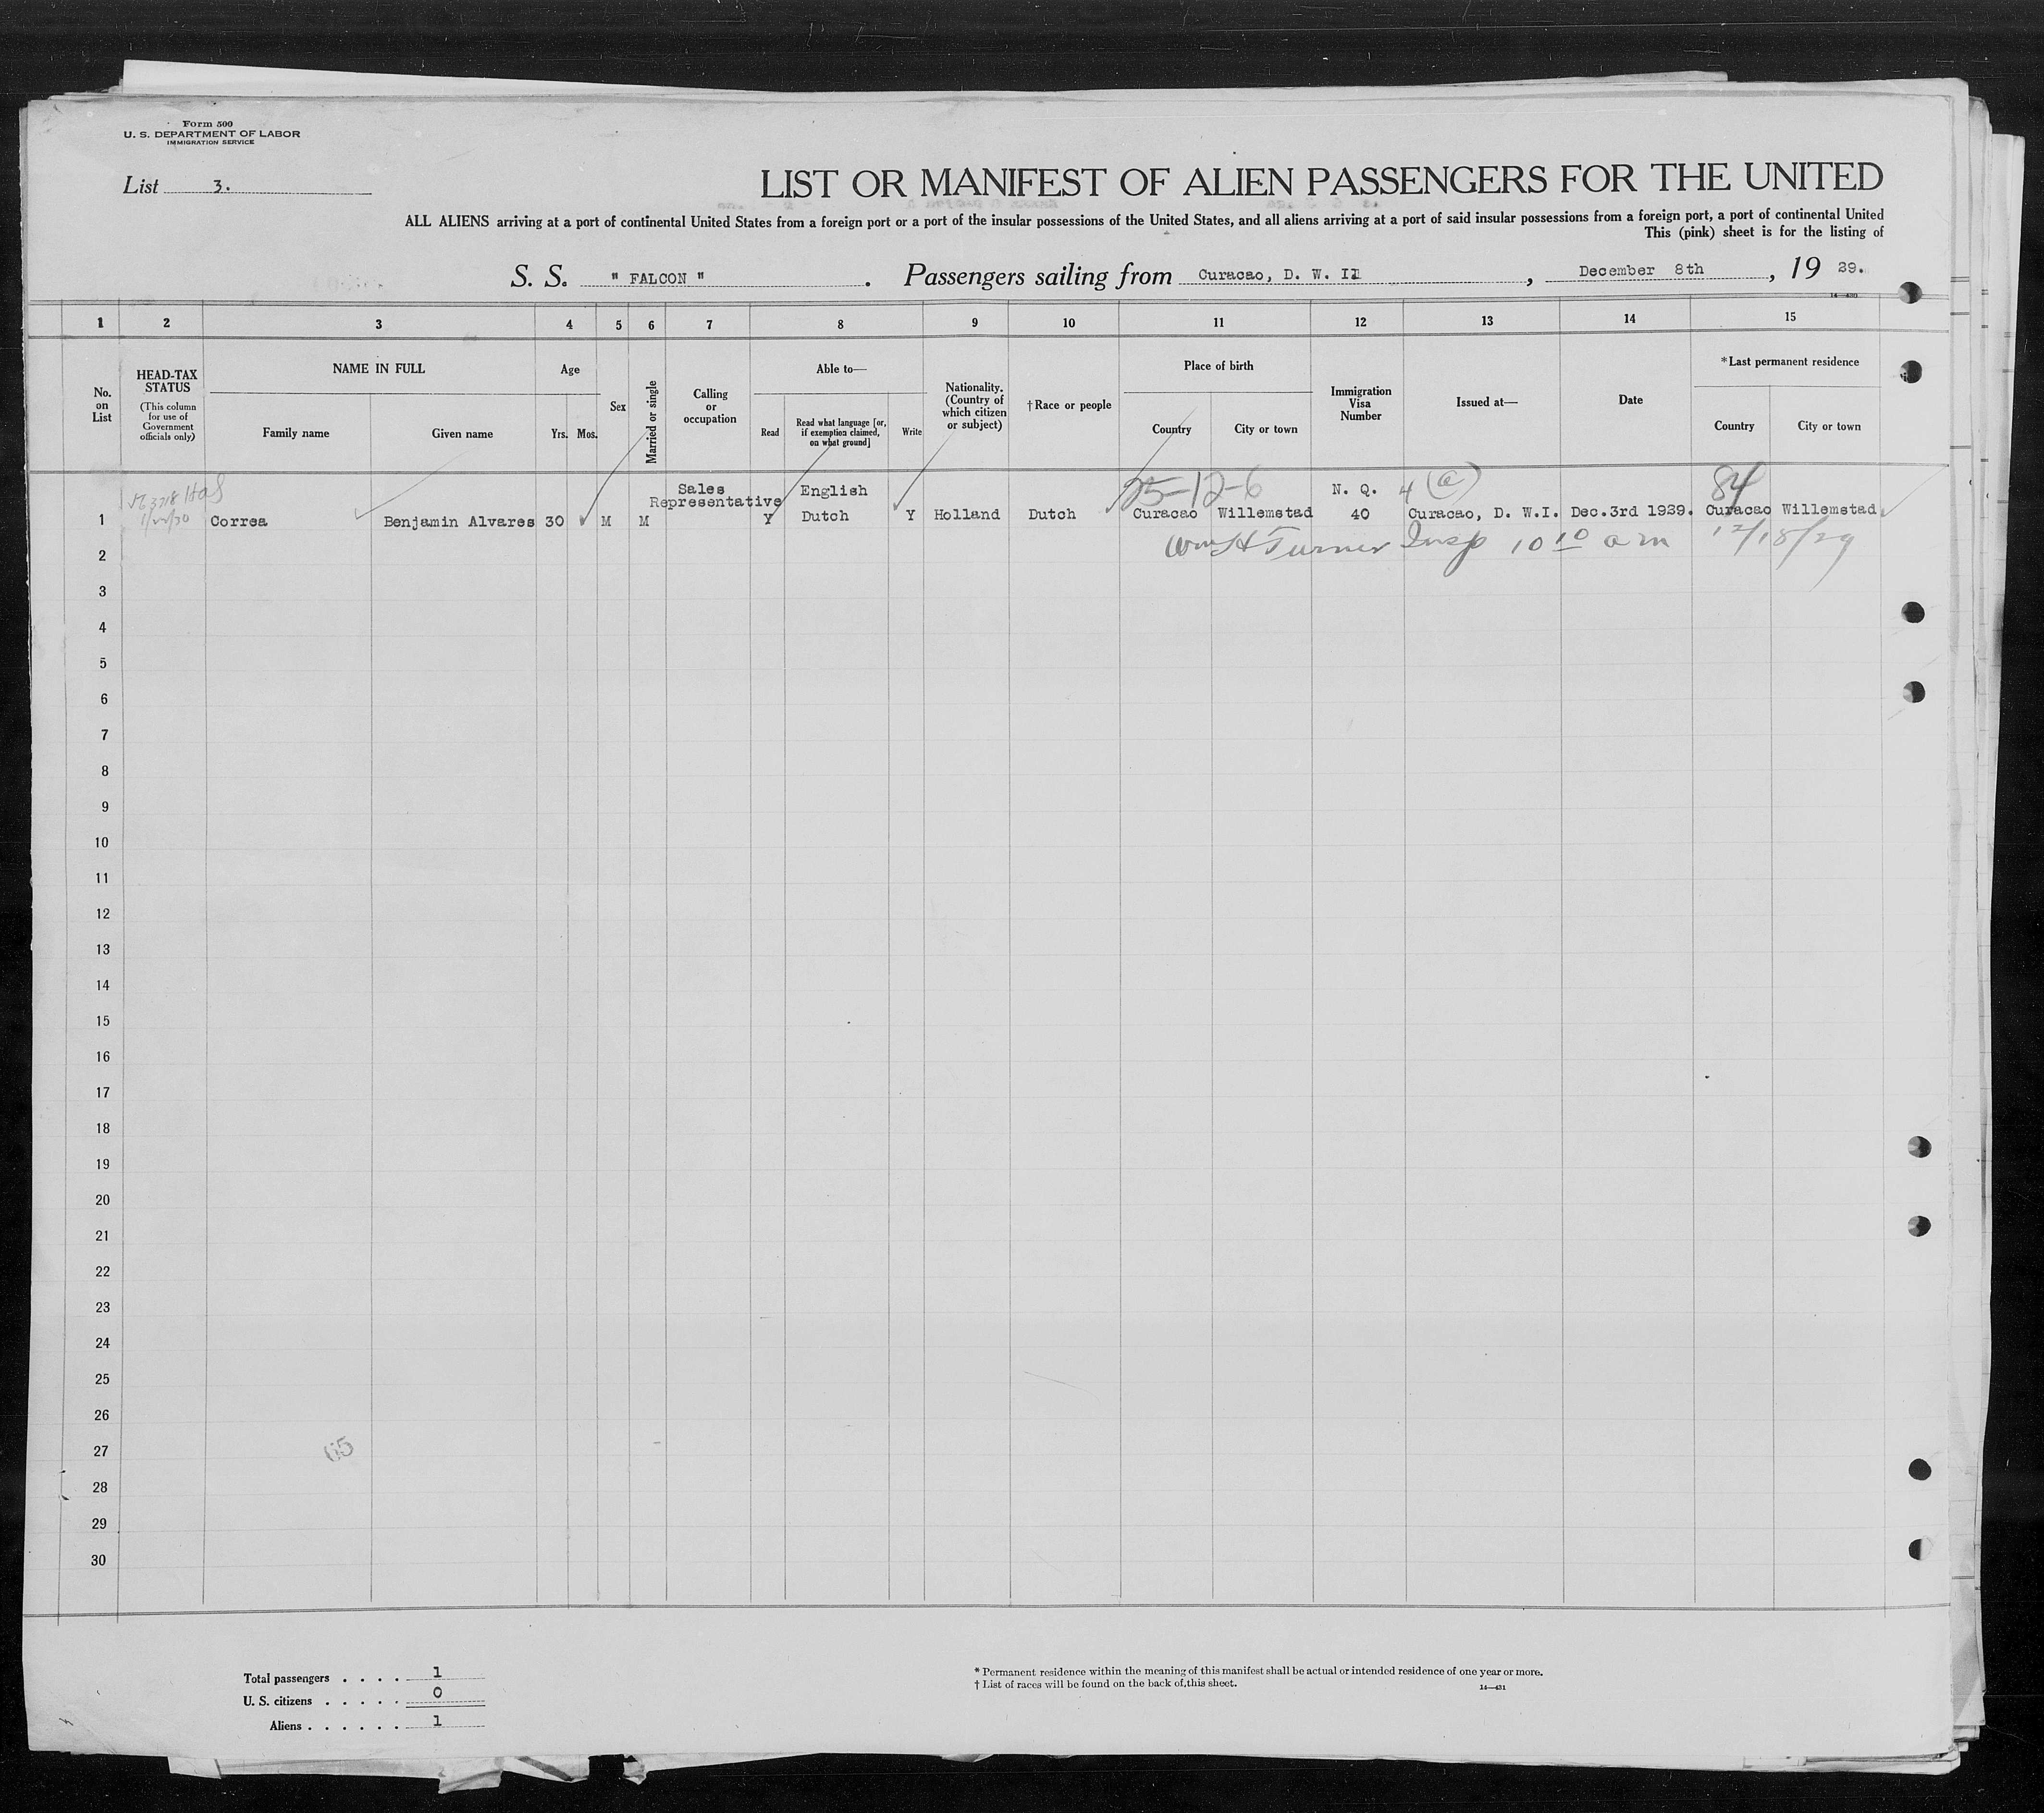 Form 500
U. S. DEPARTMENT OF LABOR
IMMIGRATION SERVICE
List 3.
LIST OR MANIFEST OF ALIEN PASSENGERS FOR THE UNITED
ALL ALIENS arriving at a port of continental United States from a foreign port or a port of the insular possessions of the United States, and all aliens arriving at a port of said insular possessions from a foreign port, a port of continental United
This (pink) sheet is for the listing of
S. S. " FALCON " . Passengers sailing from Curacao, D. W. II , December 8th , 19 29.
14—430
1 2 3 4 5 6 7 8 9 10 11 12 13 14 15
No. on List
HEAD-TAX STATUS
(This column for use of Government officials only)
NAME IN FULL
Family name
Given name
Age
Yrs. Mos.
Sex
Married or single
Calling or occupation
Able to—
Read
Read what language [or, if exemption claimed, on what ground]
Write
Nationality. (Country of which citizen or subject)
†Race or people
Place of birth
Country
City or town
Immigration Visa Number
Issued at—
Date
*Last permanent residence
Country
City or town
25-12-6
84
Sales English N. Q. 4 (a)
Representative
1 1/22/30 Correa Benjamin Alvares 30 M M Y Dutch Y Holland Dutch Curacao Willemstad 40 Curacao, D. W.I. Dec.3rd 1929. Curacao Willemstad
Wm H Turner Insp 10 10 a m 12/18/29
2
3
4
5
6
7
8
9
10
11
12
13
14
15
16
17
18
19
20
21
22
23
24
25
26
27
65
28
29
30
Total passengers . . . . 1
U. S. citizens . . . . . 0
Aliens . . . . . . 1
* Permanent residence within the meaning of this manifest shall be actual or intended residence of one year or more.
† List of races will be found on the back of this sheet.
14—431